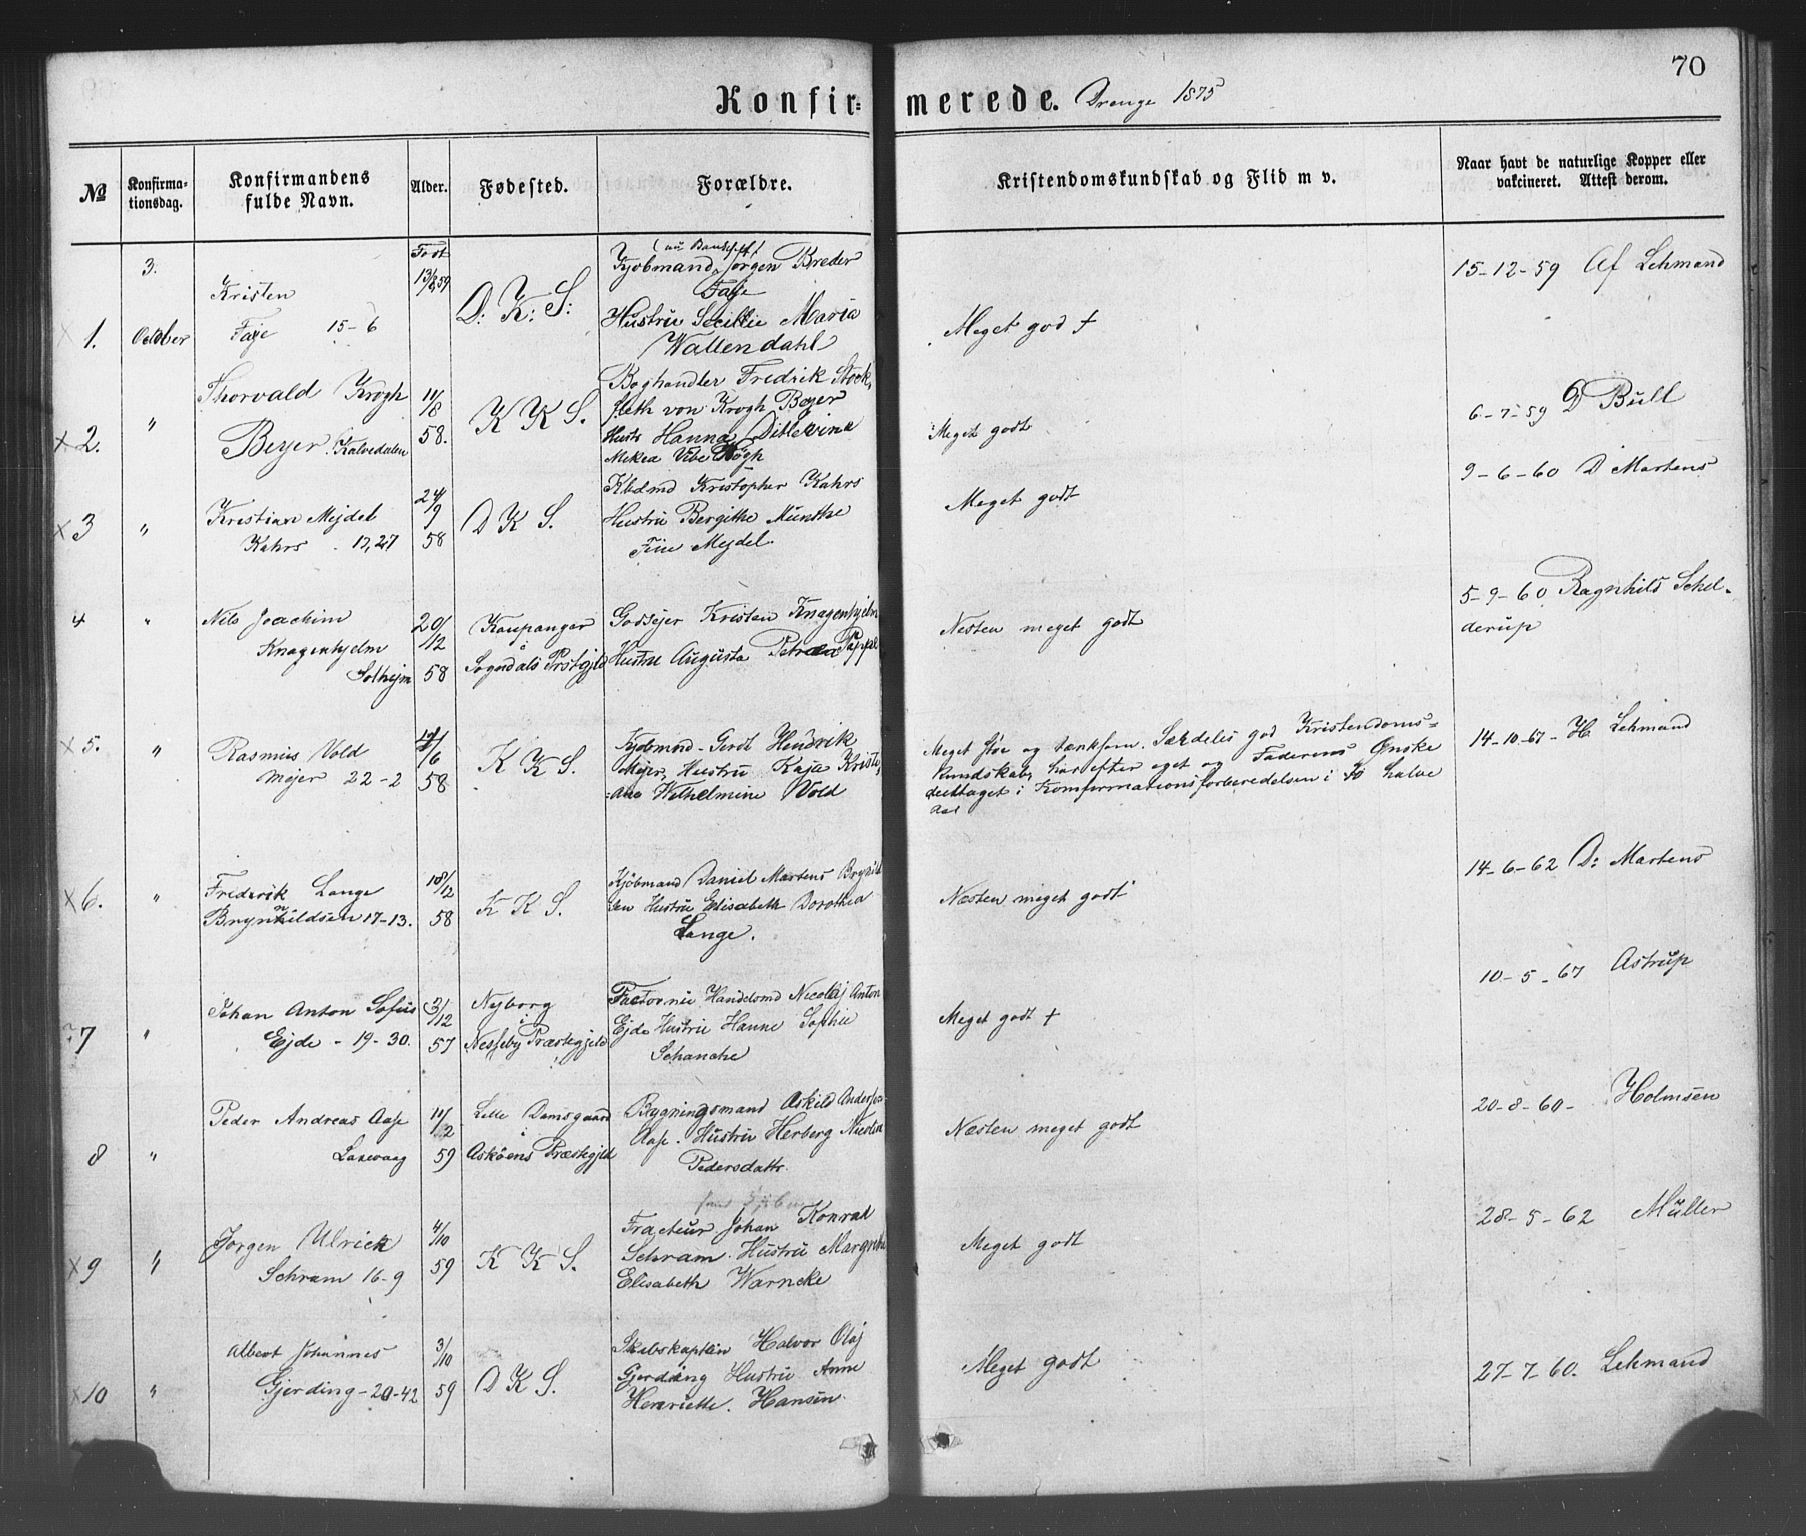 70
Konfir- merede. Drenge 1875
№
Konfirma-
tionsdag.
Konfirmandens
fulde Navn.
Alder.
Fødested.
Forældre.
Kristendomskundskab og Flid m v.
Naar havt de naturlige Kopper eller
vakcineret. Attest derom.
Født
1. 3. October
Kristen
Faye 15-6
D: K: S:
Kjøbmand Jørgen Breder
Faye
Hustru Secillie Maria
Wallendahl
Meget god +
15-12-59 Af Lehmand
2. " Thorvald Krogh
Beyer Kalvedalen
11/8 58.
K K S.
Boghandler Fredrik Stock-
fleth von Krogh Beyer
Hustr Hanna Ditlevine
Mekea Vibe Krogh
Meget godt
6-7-59 D Bull
3 " Kristian Mejdel
Kahrs . 17,27
24/9 58
D K S.
Kbdmd Kristopher Kahrs
Hustru Bergithe Munthe
Fine Mejdel.
Meget godt
9-6-60 D Martens
4 " Nils Joachim
Knagenhjelm
Solhejm
20/12 58
Kaupanger
i
Sogndals Prstgjld
Godsejer Kristen Knagenhjelm
Hustru Augusta Petrea Pappe
Nesten meget godt
5-9-60 Ragnhild Schel-
derup
5. " Rasmus Vold
Mejer 22-2
/6 58
K K S.
Kjøbmnd. Gerdt Hendrik
Mejer, Hustru Kaja Kristi-
ana Wilhelmine Vold
Meget fløe og tænksom. Særdeles god Kristendoms-
kundskab, har efter eget og Faderens Ønske
deeltaget i Konfirmationsforberedelsen i to halve
Aar
14-10-67- H Lehmand
6. " Frederik Lange
Brynhildsen 17-13.
18/12 58
K K S.
Kjøbmand Daniel Martens Brynild
sen Hustru Elisabeth Dorothea
Lange.
Næsten meget godt
14-6-62 D: Martens
7 " Johan Anton Sofus
Ejde - 19-30.
3/12 57
Nyborg
i
Nesseby Præstegjeld
Handelsmd Nicolaj Anton
Ejde Hustru Hanne Sophie
Schanche
Meget godt +
10-5-67 Astrup
8 " Peder Andreas Aase
Laxevaag
11/2 59
Lille Damsgaard
i
Askøens Præstegjld
Bygningsmand Askild Anderson
Aase. Hustru Herberg Nicolea
Pedersdattr.
Næsten meget godt
20-8-60- Holmsen
9 " Jørgen Ulrick
Schram 16-9
4/10 59
K K S.
Fracteur Johan Konrad
Schram. Hustru Margrethe
Elisabeth Warncke
Meget godt
28-5-62 Müller
10 " Albert Johannes
Gjerding - 20-42
3/10 59
D K S.
Skibskaptein Halvor Olaj
Gjerding Hustru Anne
Henriette. Hansen.
Meget godt
27-7-60. Lehmand